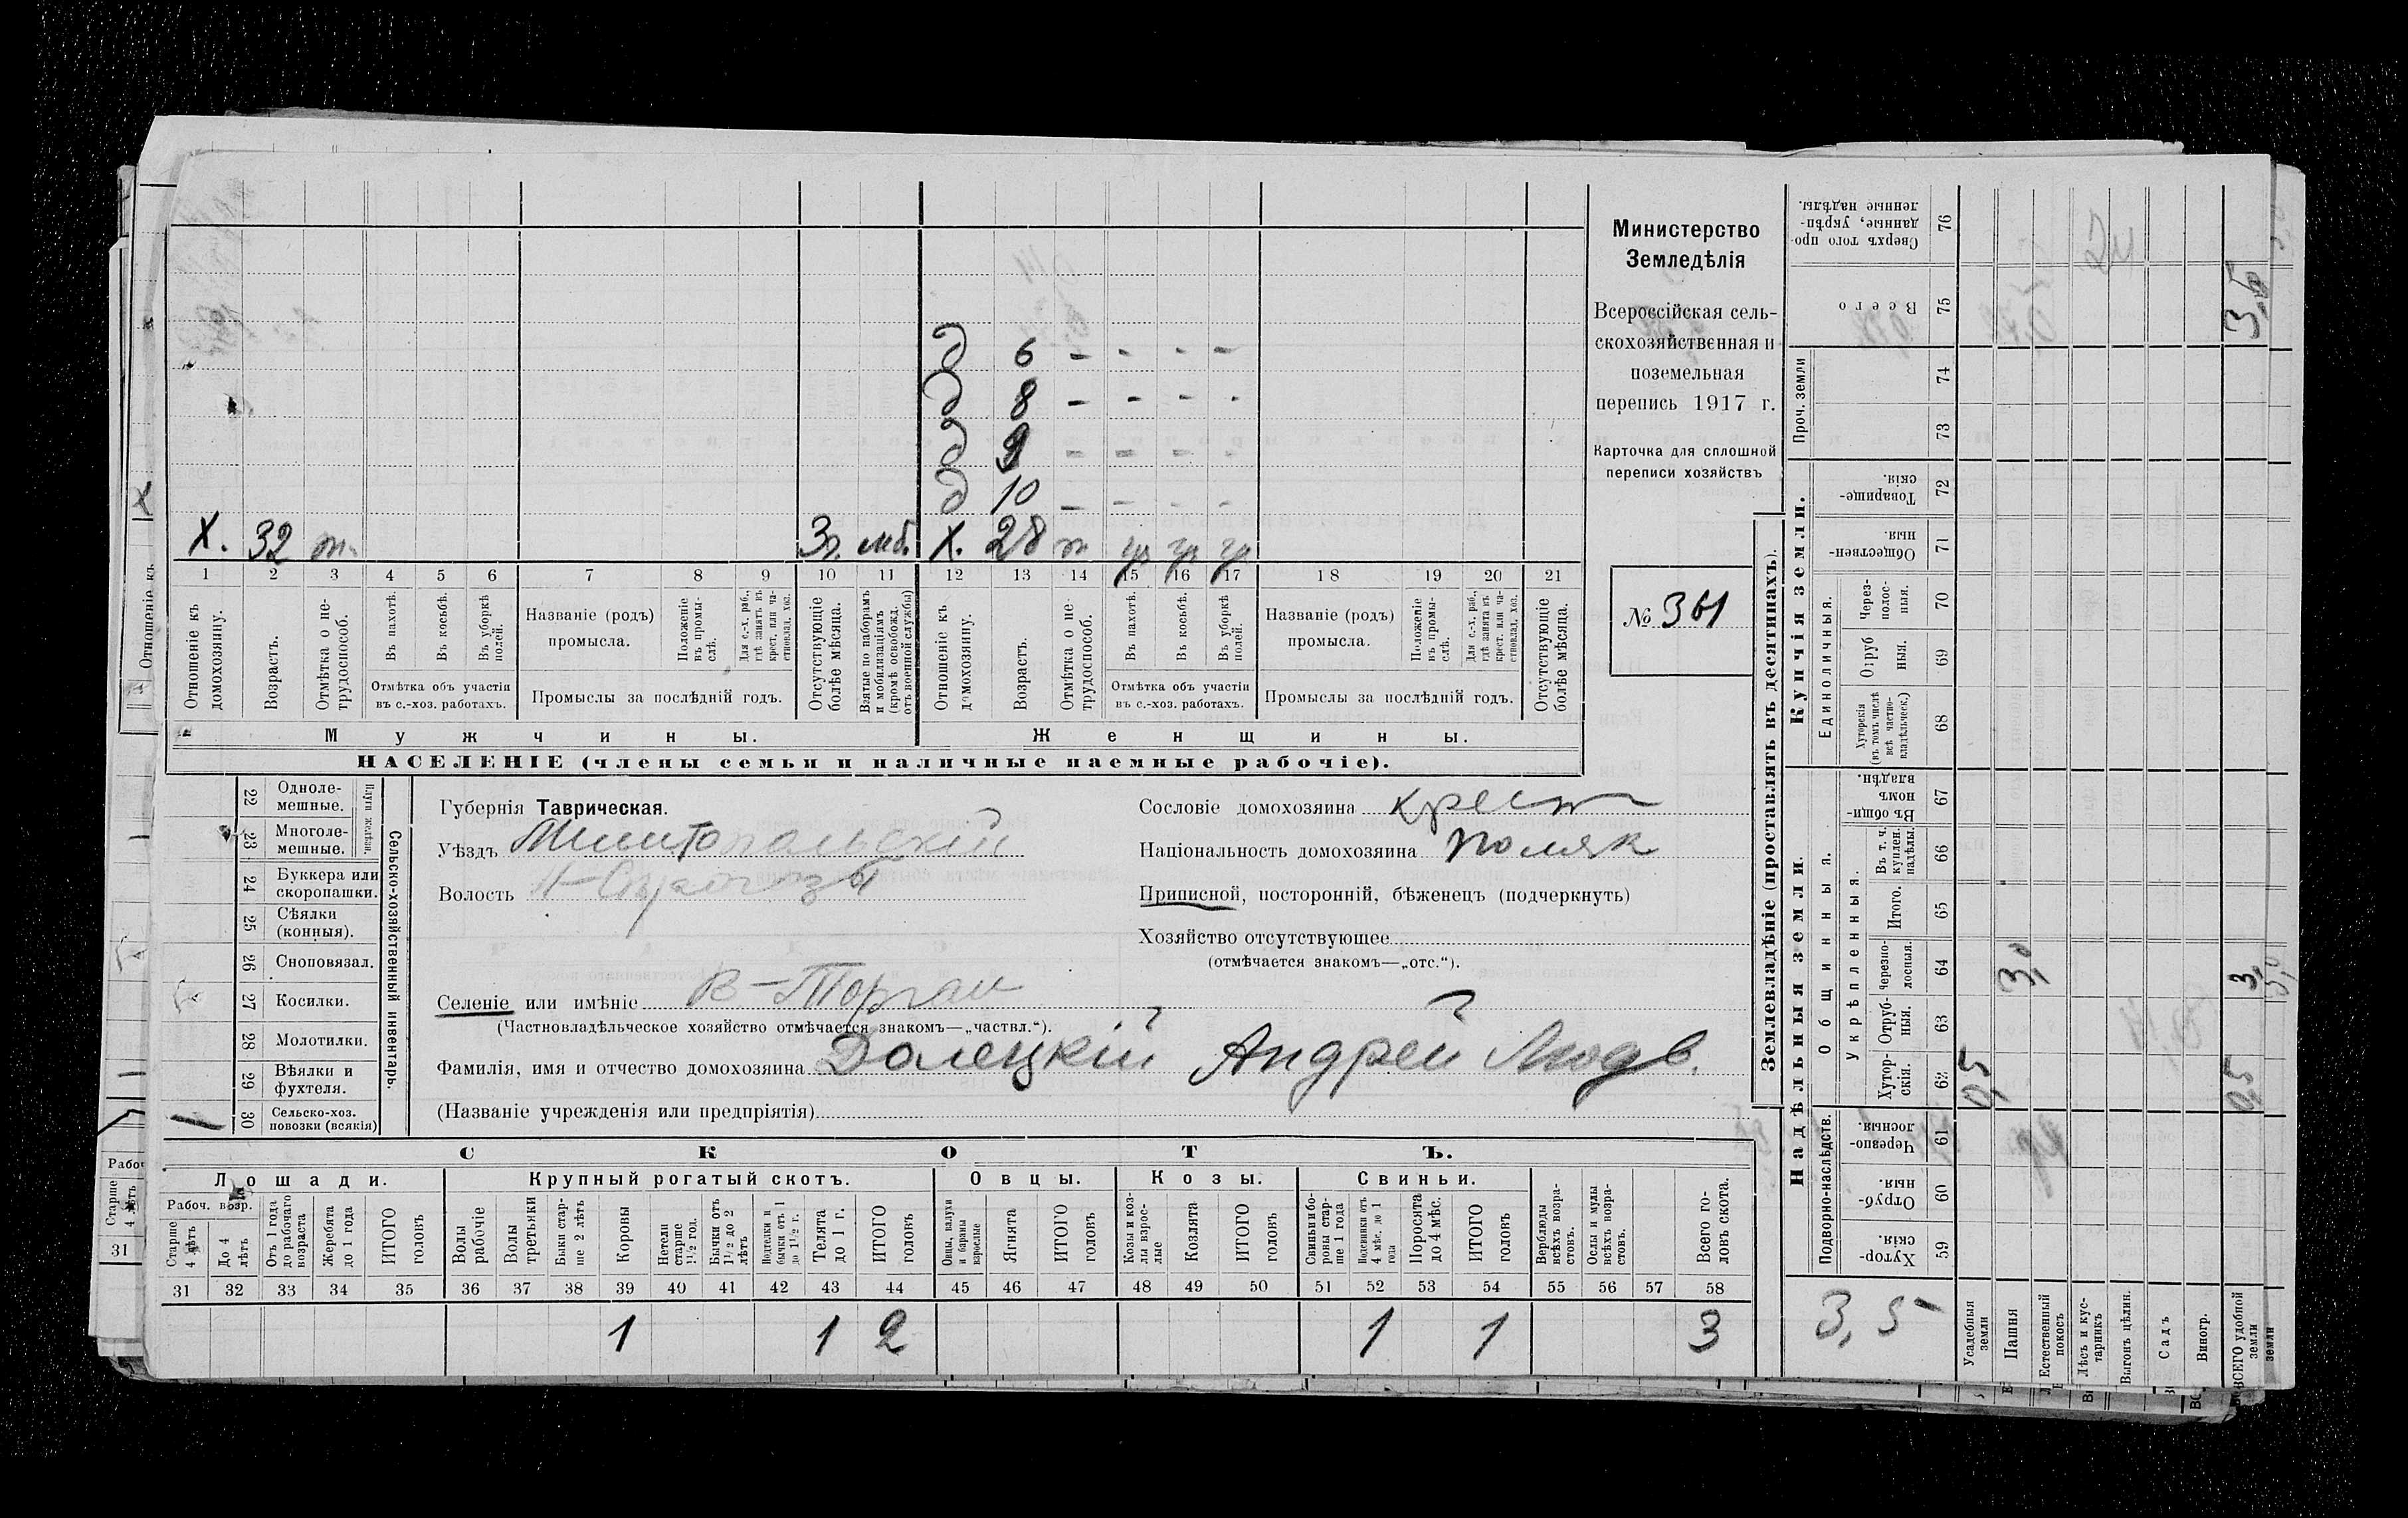 д 6 - - - -
д 8 - - - -
д 9 - - - -
д 10 - - - -
Х. 32 Зг. мб. Х. 28
1 2 3 4 5 6 7 8 9 10 11 12 13 14 15 16 17 18 19 20 21
Отношеніе къ домохозяину.
Возрастъ.
Отмѣтка о не-трудоспособ.
Въ пахотѣ.
Въ косьбѣ.
Въ уборкѣ полей.
Отмѣтка объ участіи
въ с.-хоз. работахъ.
Названіе (родъ)
промысла.
Положеніе въ промы-слѣ.
Для с.-х. раб., гдѣ занятъ въ крест. или ча-стновлад. хоз.
Промыслы за послѣдній годъ.
Отсутствующіе болѣе мѣсяца.
Взятые по наборамъ и мобилизаціямъ (кромѣ освобожд. отъ военной службы)
Отношеніе къ домохозяину.
Возрастъ.
Отмѣтка о не-трудоспособ.
Въ пахотѣ.
Въ косьбѣ.
Въ уборкѣ полей.
Отмѣтка объ участіи
въ с.-хоз. работахъ.
Названіе (родъ)
промысла.
Положеніе въ промы-слѣ.
Для с.-х. раб., гдѣ занятъ въ крест. или ча-стновлад. хоз.
Промыслы за послѣдній годъ.
Отсутствующіе болѣе мѣсяца.
Мужчины.
Женщины.
НАСЕЛЕНІЕ (члены семьи и наличные наемные рабочіе).
Министерство
Земледѣлія
Всероссійская сель-
скохозяйственная и
поземельная
перепись 1917 г.
Карточка для сплошной
переписи хозяйствъ
№ 361
22 Одноле-мешные.
23 Многоле-мешные.
Плуги желѣзн.
24 Буккера или скоропашки.
25 Сѣялки (конныя).
26 Сноповязал.
27 Косилки.
28 Молотилки.
29 Вѣялки и фухтеля.
1 30 Сельско-хоз. повозки (всякія)
Сельско-хозяйственный инвентарь.
Губернія Таврическая.
Уѣздъ Мелитопольскій
Волость
Селеніе или имѣніе В-Торгаи
(Частновладѣльческое хозяйство отмѣчается знакомъ—„частвл.“).
Фамилія, имя и отчество домохозяина Долецкій Андрей Людв.
(Названіе учрежденія или предпріятія)
Сословіе домохозяина крест
Національность домохозяина поляк
Приписной, посторонній, бѣженецъ (подчеркнуть)
Хозяйство отсутствующее
(отмѣчается знакомъ—„отс.“).
СКОТЪ.
Лошади.
Крупный рогатый скотъ.
Овцы.
Козы.
Свиньи.
Рабоч. возр.
Старше 4 лѣтъ
До 4 лѣтъ
Отъ 1 года до рабочаго возраста
Жеребята до 1 года
ИТОГО головъ
Волы рабочіе
Волы третьяки
Быки стар-ше 2 лѣтъ
Коровы
Нетели старше 1½ год.
Бычки отъ 1½ до 2 лѣтъ
Подтелки и бычки отъ 1 до 1½ г.
Телята до 1 г.
ИТОГО головъ
Овцы, валухи и бараны взрослые
Ягнята
ИТОГО головъ
Козы и коз-лы взрос-лые
Козлята
ИТОГО головъ
Свиньи и бо-ровы стар-ше 1 года
Подсвинки отъ 4 мѣс. до 1 года
Поросята до 4 мѣс.
ИТОГО головъ
Верблюды всѣхъ возра-стовъ.
Ослы и мулы всѣхъ возра-стовъ.
Всего го-ловъ скота.
31 32 33 34 35 36 37 38 39 40 41 42 43 44 45 46 47 48 49 50 51 52 53 54 55 56 57 58
1 1 2 1 1 3
Землевладѣніе (проставлять въ десятинахъ).
Сверхъ того про-данные, укрѣп-ленные надѣлы. 76
Всего 75 3,5
Проч. земли 74
73
Купчія земли.
Товарище-скія. 72
Обществен-ныя. 71
Единоличныя.
Через-полос-ныя. 70
Отруб ныя. 69
Хуторскія (въ томъ числѣ всѣ частно-владѣльческ.) 68
Надѣльныя земли.
Общинныя.
Въ общи-номъ владѣн. 67
Укрѣпленныя.
Въ т. ч. куплен. надѣлы. 66
Итого. 65
Черезпо-лосныя. 64 3,0 3,
Отруб-ныя. 63
Хутор-скія. 62 0,5 0,5
Подворно-наслѣдств.
Черезпо-лосныя. 61
Отруб-ныя. 60
Хутор-скія. 59
3,5
Усадебныя земли
Пашня
Естественный покосъ
Лѣсъ и кус-тарникъ
Выгонъ цѣлин.
Садъ
Виногр.
ВСЕГО удобной земли